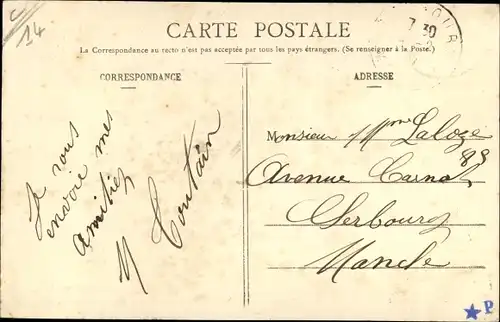 C
14
CARTE POSTALE
La Correspondance au recto n'est pas acceptée par tous les pays étrangers. (Se renseigner à la Poste.)
7 30
CORRESPONDANCE
ADRESSE
Je vous
envoie mes
amitiés
M Coutain
Monsieur Mme Laloze
Avenue Carnot 89
Serbourg
Manche
P